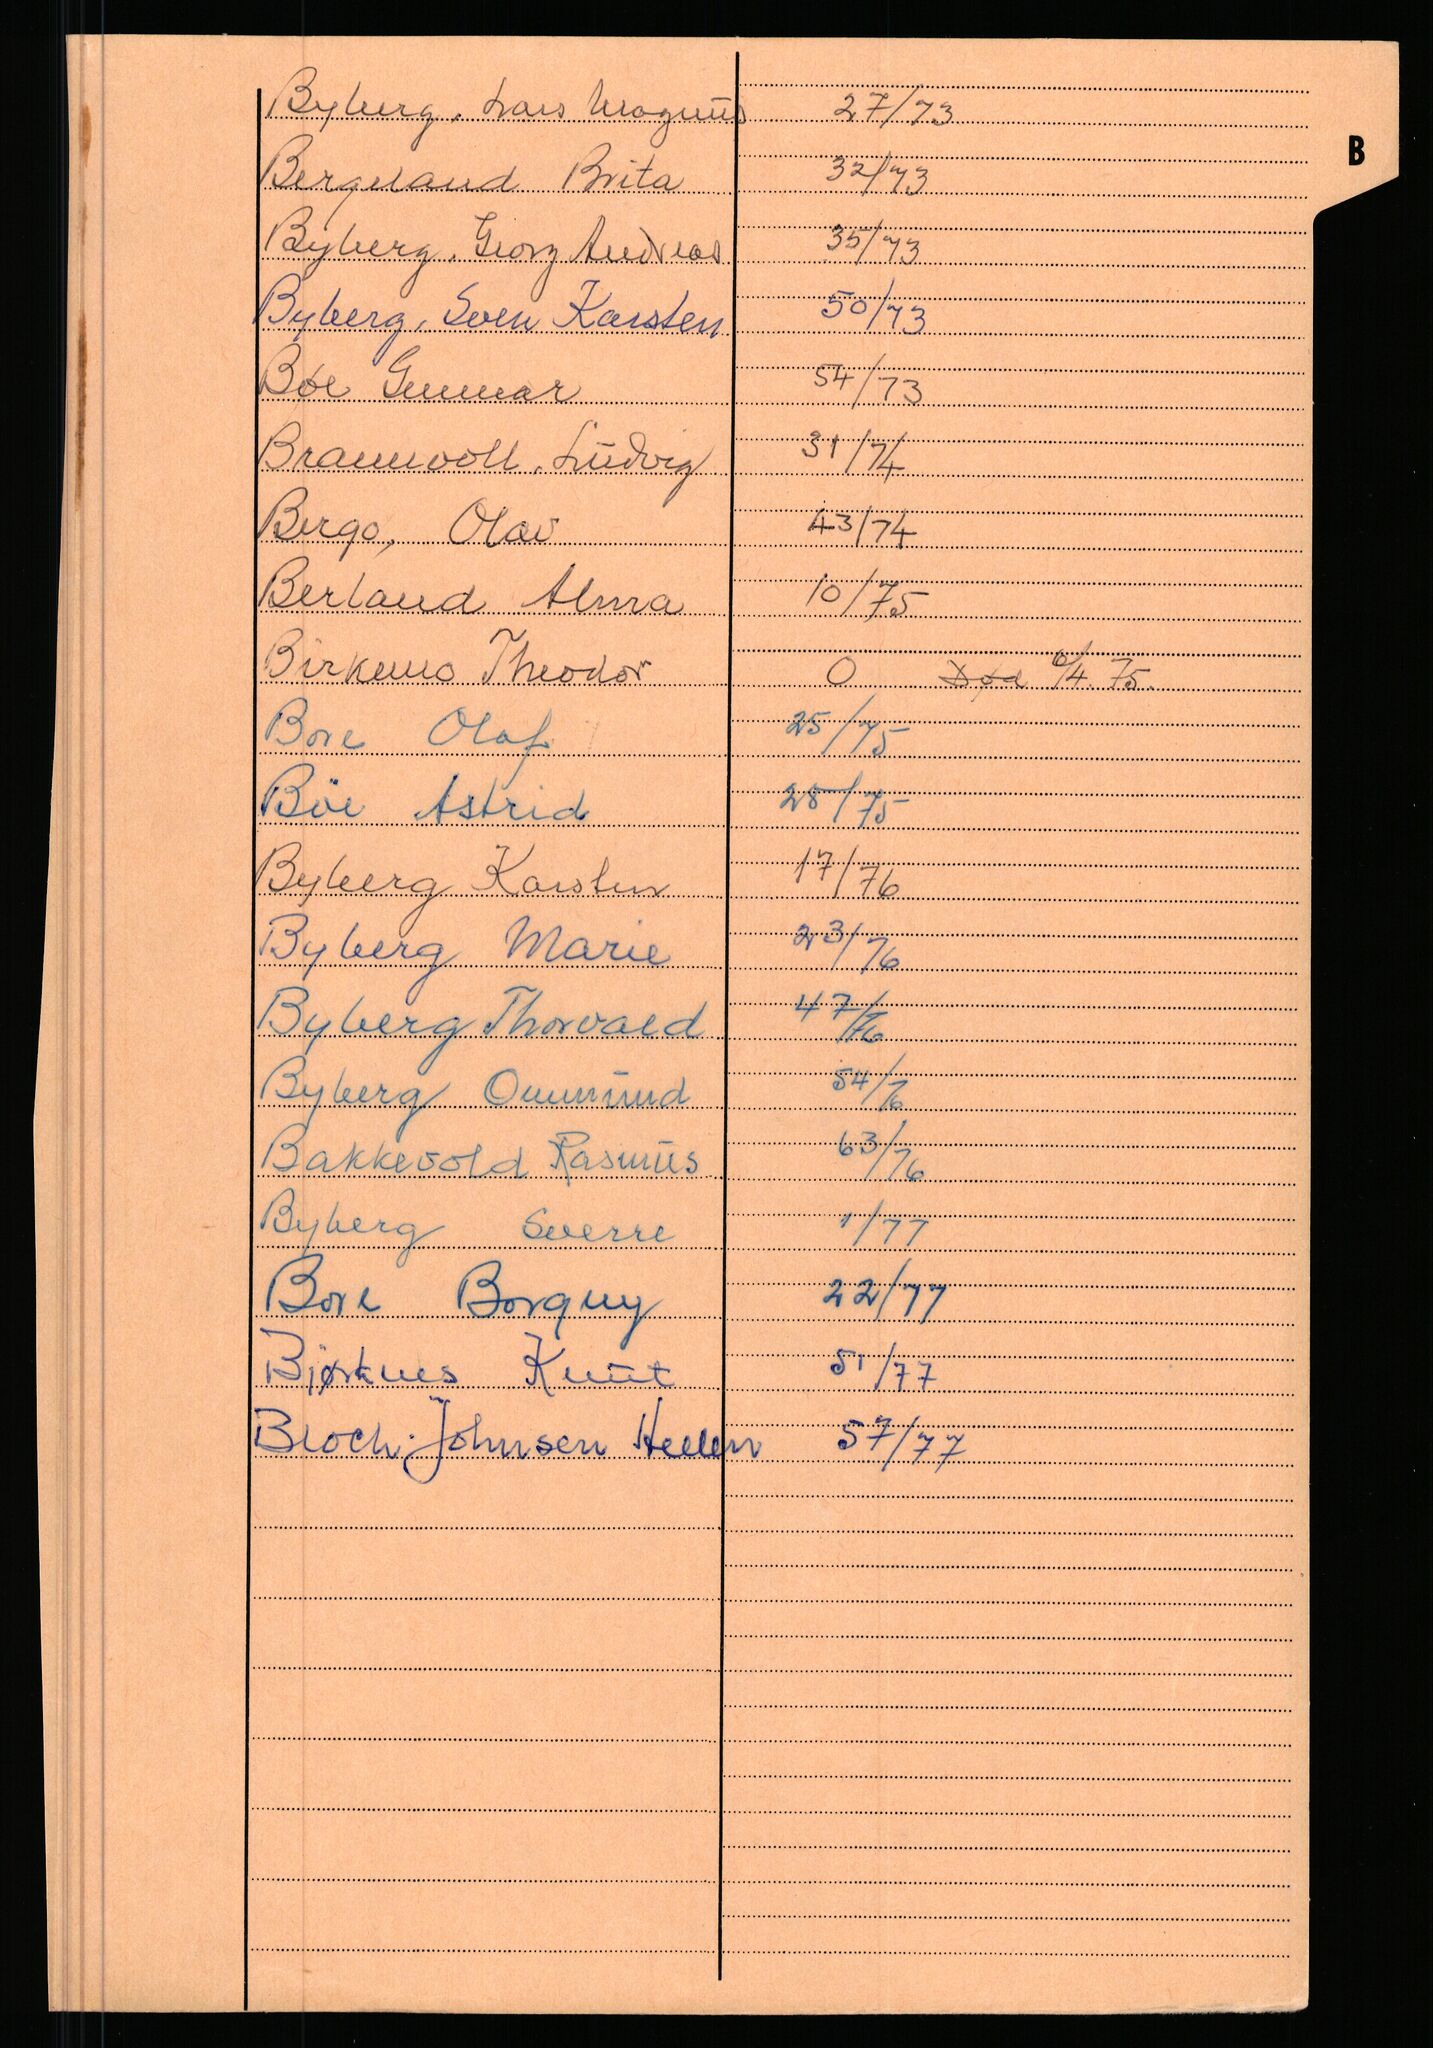 B
Byberg, Lars Magnus 27/73
Bergeland Brita 32/73
Byberg, Georg Andreas 35/73
Byberg, Sven Karsten 50/73
Bøe Gunnar 54/73
Braumvoll, Ludvig 31/74
Bergo, Olav 43/74
Berland Alma 10/75
Birkemo Theodor 0 Død 10/4. 75.
Bore Olaf 25/75
Böe Astrid 28/75
Byberg Karsten 17/76
Byberg Marie 23/76
Byberg Thorvald 47/76
Byberg Ommund 54/76
Bakkevold Rasmus 63/76
Byberg Sverre 1/77
Bore Borguy 22/77
Bjørknes Knut 51/77
Bloch-Johnsen Hellen 57/77